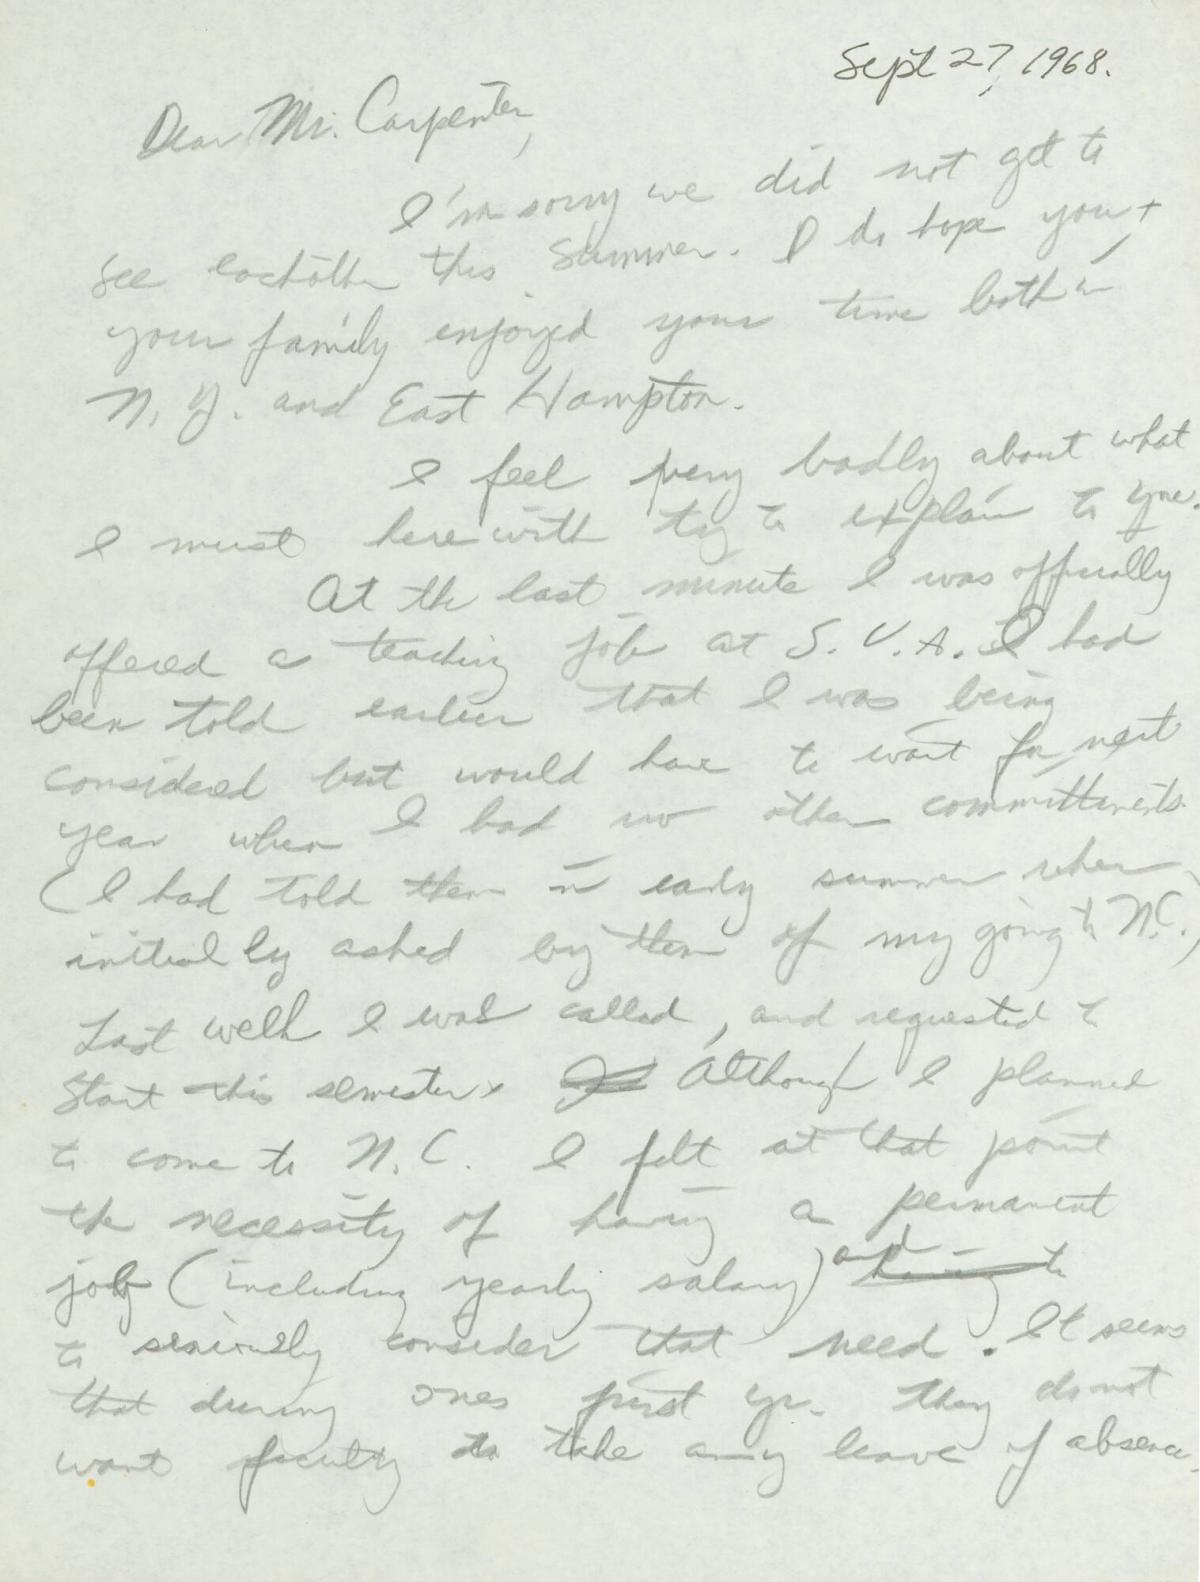 Sept 27, 1968.
Dear Mr. Carpenter,
I'm sorry we did not get to
see eachother this Summer. I do hope you +
your family enjoyed your time both in
N.Y. and East Hampton.
I feel very badly about what
I must herewith try to explain to you.
At the last minute I was officially
offered a teaching job at S.V.A. I had
been told earlier that I was being
considered but would have to wait for next
year when I had no other committments.
(I had told them in early summer when
initially asked by them of my going to N.C.)
Last week I was called, and requested to
start this semester. Although I planned
to come to N.C. I felt at that point
the necessity of having a permanent
job (including yearly salary) and
to seriously consider that need. It seems
that during ones first yr. they do not
want faculty to take any leave of absence.